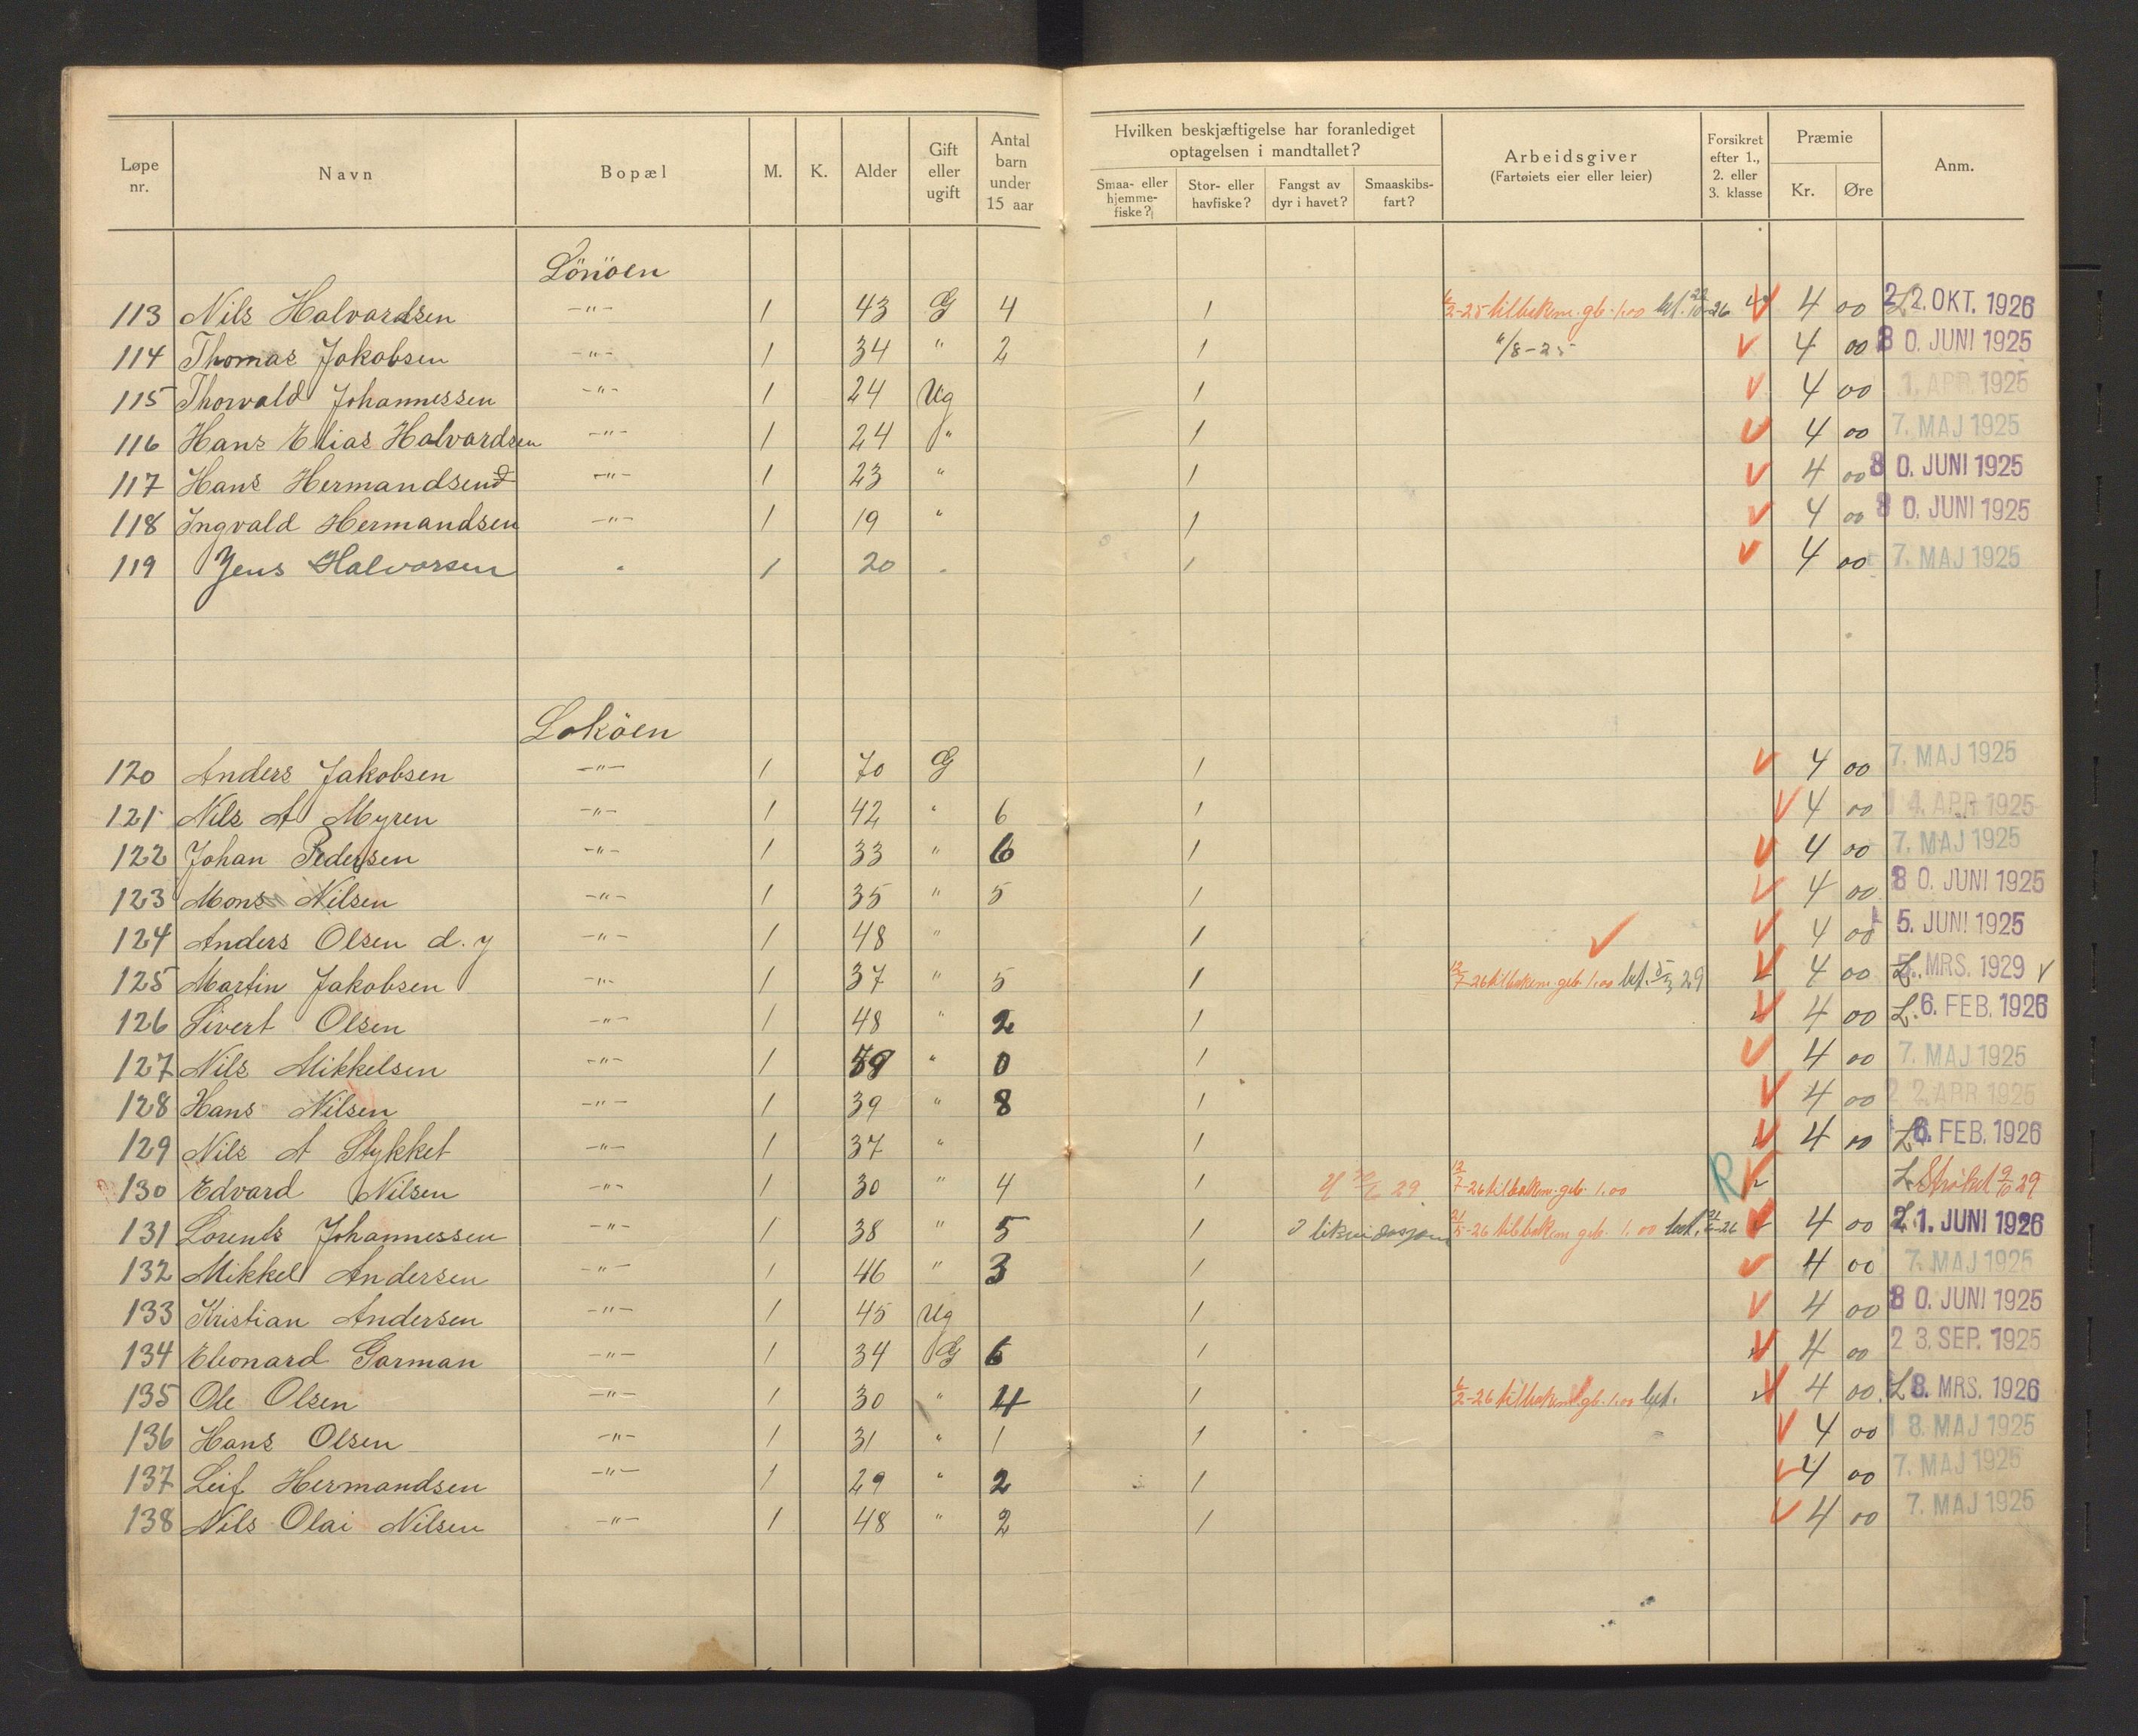 Løpe nr. | Navn | Bopæl | M. | K. | Alder | Gift eller ugift | Antal barn under 15 aar | Hvilken beskjæftigelse har foranlediget optagelsen i mandtallet? | Smaa- eller hjemme-fiske? | Stor- eller havfiske? | Fangst av dyr i havet? | Smaaskibs-fart? | Arbeidsgiver (Fartøiets eier eller leier) | Forsikret efter 1., 2. eller 3. klasse | Præmie Kr. Øre | Anm.
Lönöen
113 Nils Halvardsen -"- 1 43 G 4 1 6/2-25 tilbakem. gb. 1.00 bet. 22/10-26 V 4 00 L 22. OKT. 1926
114 Thomas Jakobsen -"- 1 34 " 2 1 "/8-25 V 4 00 30. JUNI 1925
115 Thorvald Johannessen -"- 1 24 Ug 1 V 4 00 1. APR. 1925
116 Hans Elias Halvardsen -"- 1 24 " 1 V 4 00 7. MAJ 1925
117 Hans Hermandsen -"- 1 23 " 1 V 4 00 30. JUNI 1925
118 Ingvald Hermandsen -"- 1 19 " 1 V 4 00 30. JUNI 1925
119 Jens Halvorsen " 1 20 " 1 V 4 00 7. MAJ 1925
Loköen
120 Anders Jakobsen -"- 1 70 G 1 V 4 00 7. MAJ 1925
121 Nils A Myren -"- 1 42 " 6 1 V 4 00 14. APR. 1925
122 Johan Pedersen -"- 1 33 " 6 1 V 4 00 7. MAJ 1925
123 Mons Nilsen -"- 1 35 " 5 1 V 4 00 30. JUNI 1925
124 Anders Olsen d. y -"- 1 48 " 1 V V 4 00 5. JUNI 1925
125 Martin Jakobsen -"- 1 37 " 5 1 12/7-26 tilbakem. geb. 1.00 bet. 5/3 29 V 4 00 L 5. MRS. 1929 V
126 Sivert Olsen -"- 1 48 " 2 1 V 4 00 L. 6. FEB. 1926
127 Nils Mikkelsen -"- 1 " 0 1 V 4 00 7. MAJ 1925
128 Hans Nilsen -"- 1 39 " 8 1 V 4 00 22. APR. 1925
129 Nils A Stykket -"- 1 37 " 1 V 4 00 L 6. FEB. 1926
130 Edvard Nilsen -"- 1 30 " 4 1 29 12/7-26 tilbakem. geb. 1.00 R V L Strøket 9/10 29
131 Lorents Johannessen -"- 1 38 " 5 1 21/5-26 tilbakem geb. 1.00 bet. 21/6-26 V 4 00 L 21. JUNI 1926
132 Mikkel Andersen -"- 1 46 " 3 1 V 4 00 7. MAJ 1925
133 Kristian Andersen -"- 1 45 Ug 1 V 4 00 30. JUNI 1925
134 Eleonard Garman -"- 1 34 G 6 1 V 4 00 23. SEP. 1925
135 Ole Olsen -"- 1 30 " 4 1 6/2-26 tilbakem. gb. 1.00 bet. V 4 00 L 8. MRS. 1926
136 Hans Olsen -"- 1 31 " 1 1 V 4 00 18. MAJ 1925
137 Leif Hermandsen -"- 1 29 " 2 1 V 4 00 7. MAJ 1925
138 Nils Olai Nilsen -"- 1 48 " 2 1 V 4 00 7. MAJ 1925